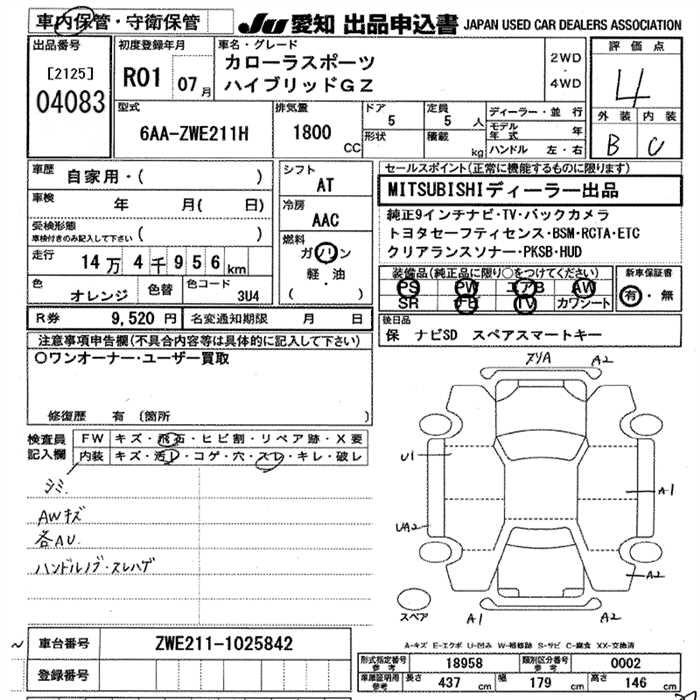 車内保管・守衛保管
JU 愛知 出品申込書 JAPAN USED CAR DEALERS ASSOCIATION
出品番号
[2125]
04083
初度登録年月
R01 07月
車名・グレード
カローラスポーツ
ハイブリッドGZ
2WD
・
4WD
評価点
4
外装 内装
B C
型式
6AA-ZWE211H
排気量
1800 CC
ドア
5
形状
定員
5 人
積載
kg
ディーラー・並行
モデル年式 年
ハンドル 左・右
車歴 自家用・( )
車検 年 月( 日)
受検形態
車検付きのみ記入して下さい ( )
走行 14万4千956km
色
オレンジ
色替
色コード
3U4
シフト
AT
冷房
AAC
燃料
ガソリン
軽・油
( )
セールスポイント(正常に機能するものに限ります)
MITSUBISHIディーラー出品
純正9インチナビ・TV・バックカメラ
トヨタセーフティセンス・BSM・RCTA・ETC
クリアランスソナー・PKSB・HUD
装備品(純正品に限り○をつけてください)
PS PW エアB AW
SR TV カワシート
新車保証書
有・無
R券 9,520円 名変通知期限 月 日
後日品
保 ナビSD スペアスマートキー
注意事項申告欄(不具合内容等は具体的に記入して下さい)
○ワンオーナー・ユーザー買取
修復歴 有 (箇所 )
検査員
記入欄
FW キズ・飛石・ヒビ割・リペア跡・X要
内装 キズ・汚レ・コゲ・穴・スレ・キレ・破レ
シミ
AWキズ
各AU
ハンドルノブ・スレハゲ
A2
U1
A1
UA2
A2
スペア
A1
A2
A-キズ E-エクボ U-凹み W-補修跡 S-サビ C-腐食 XX-交換済
~
車台番号 ZWE211-1025842
登録番号
形式指定番号 参考 18958
類別区分番号 参考 0002
車庫証明用 参考
長さ 437 cm
幅 179 cm
高さ 146 cm